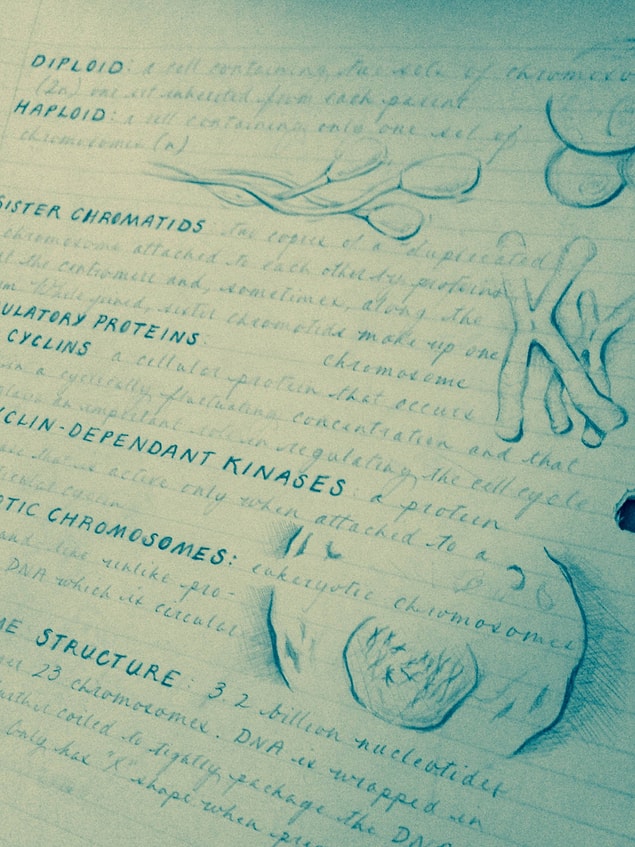 DIPLOID: a cell containing two sets of chromoso
(2n) one set inherited from each parent
HAPLOID: a cell containing only one set of
chromosomes (n)
SISTER CHROMATIDS two copies of a duplicated
chromosome attached to each other by proteins
at the centromere and, sometimes, along the
While joined, sister chromatids make up one
chromosome
ULATORY PROTEINS:
CYCLINS a cellular protein that occurs
in a cyclically fluctuating concentration and that
plays an important role in regulating the cell cycle
YCLIN-DEPENDANT KINASES: a protein
that is active only when attached to a
particular cyclin
OTIC CHROMOSOMES: eukaryotic chromosomes
and line unlike pro-
DNA which is circular
ME STRUCTURE: 3.2 billion nucleotides
23 chromosomes. DNA is wrapped in
further coiled to tightly package the DNA
Only has "X" shape when